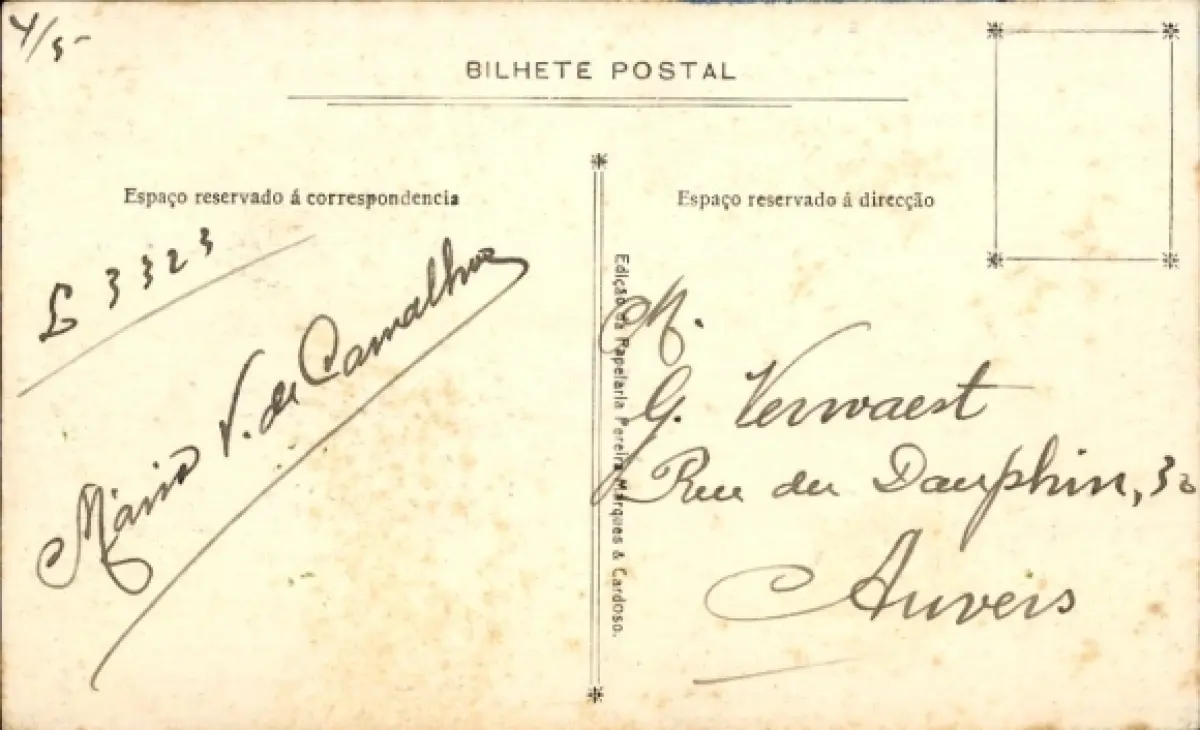 4/5-
BILHETE POSTAL
Espaço reservado á correspondencia
L 3323
Mário V. de Carvalho
Espaço reservado á direcção
Edição da Papelaria Pereira Marques & Cardoso.
M.
G. Verwaest
Rue du Dauphin, 30
Anvers